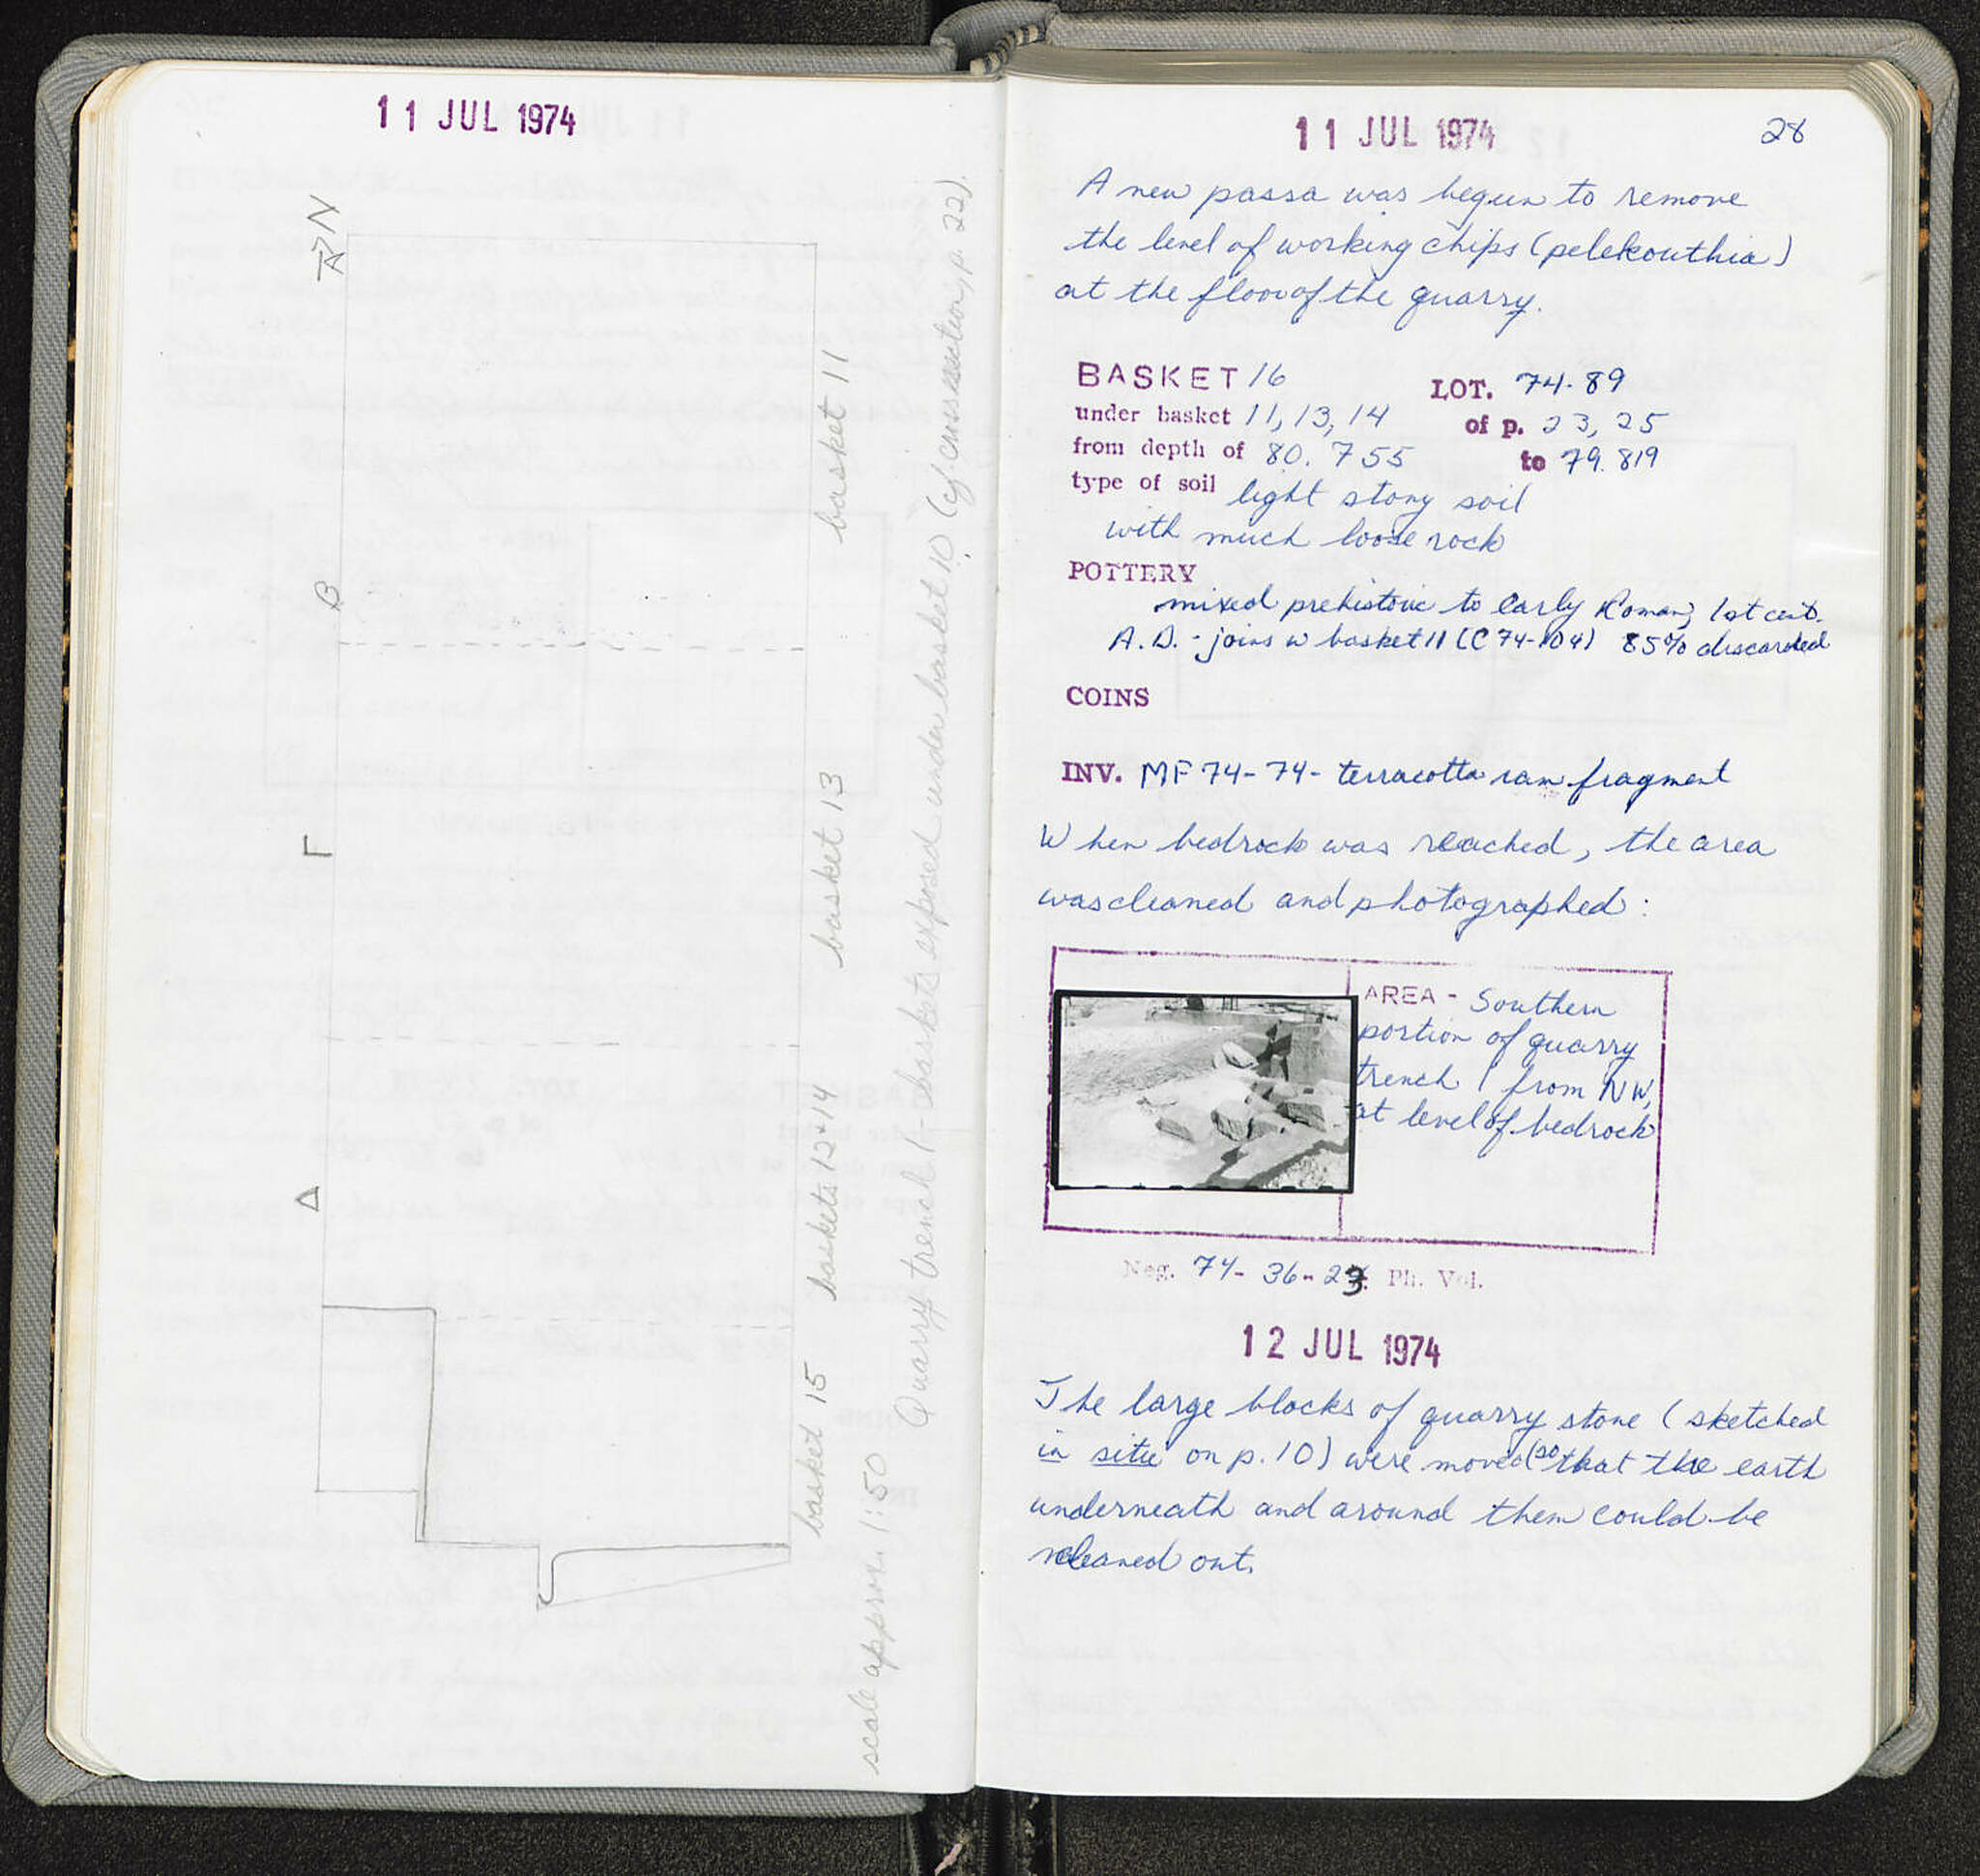 11 JUL 1974
N
B
Γ
Δ
basket 11
basket 13
baskets 13+14
basket 15
Quarry trench 1 - baskets exposed under basket 10 (cf. cross section, p. 22).
scale approx. 1:50
11 JUL 1974
28
A new passa was begun to remove
the level of working chips (pelekouthia)
at the floor of the quarry.
BASKET 16 LOT. 74-89
under basket 11, 13, 14 of p. 23, 25
from depth of 80.755 to 79.819
type of soil light stony soil
with much loose rock
POTTERY
mixed prehistoric to early Roman, 1st cent.
A.D. - joins w basket 11 (C 74-104) 85% discarded
COINS
INV. MF 74-74 - terracotta ram fragment
When bedrock was reached, the area
was cleaned and photographed:
AREA - Southern
portion of quarry
trench 1 from NW,
at level of bedrock
Neg. 74-36-23 Ph. Vol.
12 JUL 1974
The large blocks of quarry stone (sketched
in situ on p. 10) were moved so that the earth
underneath and around them could be
cleaned out.